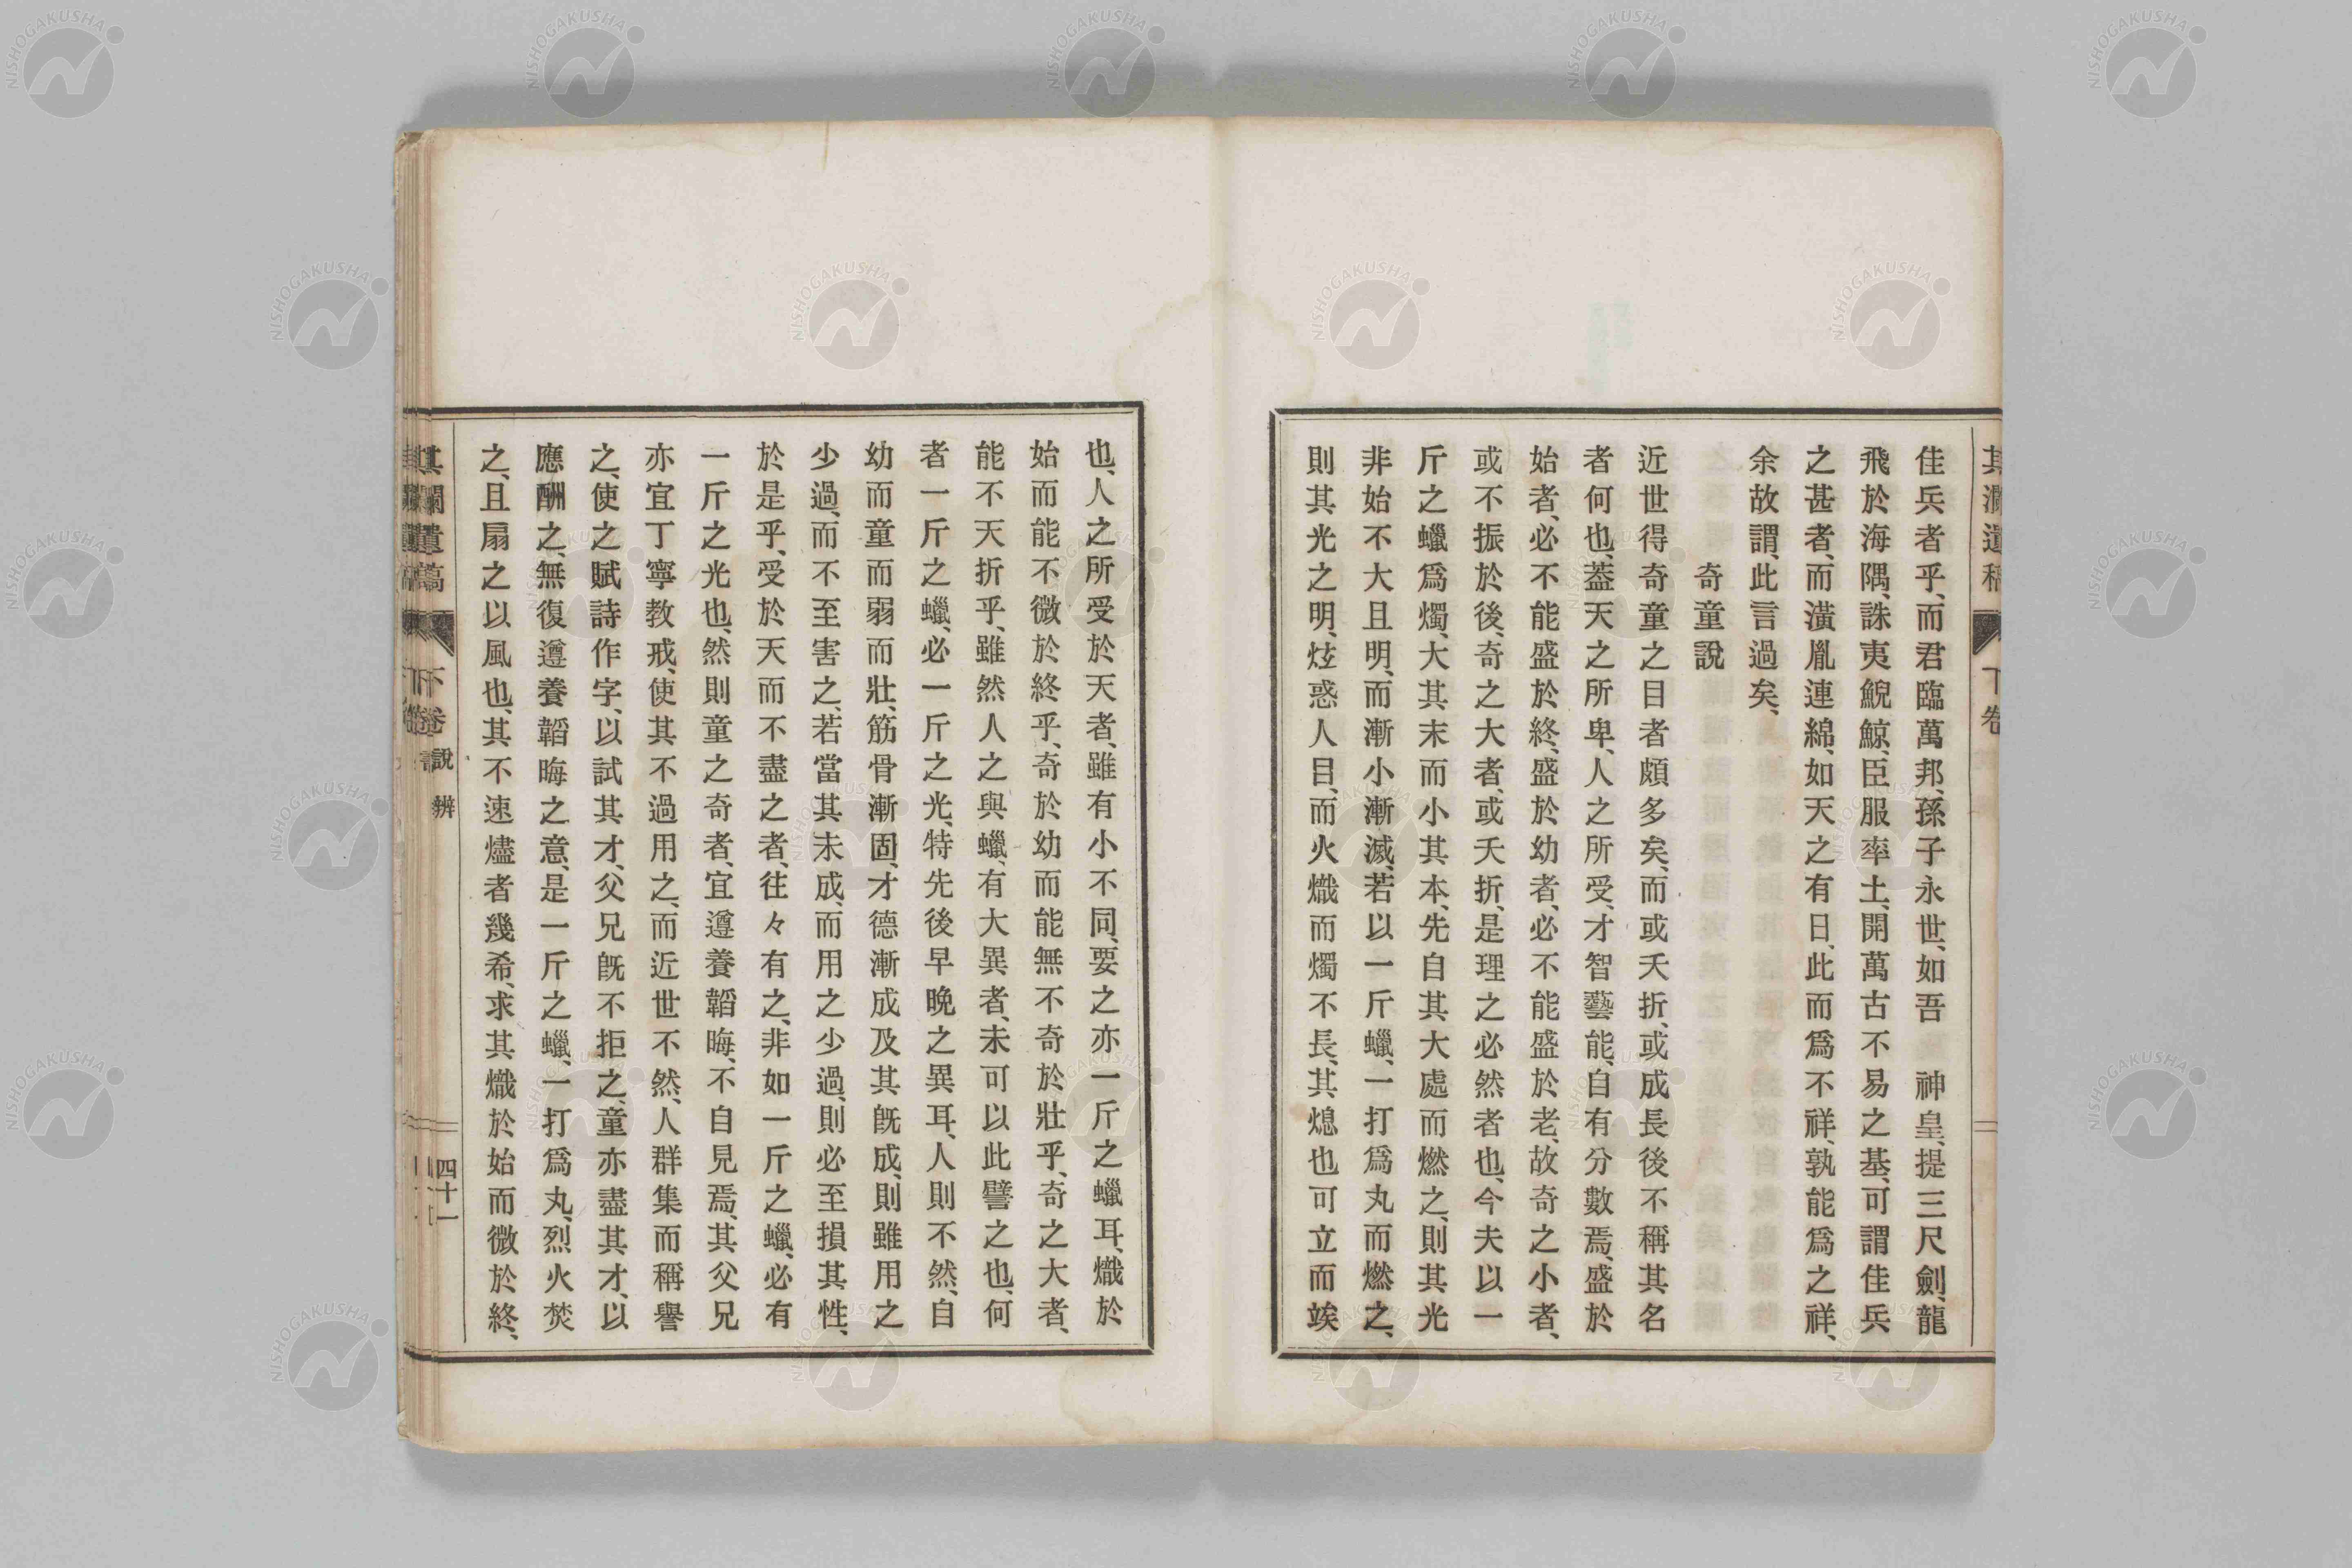 佳兵者乎、而君臨萬邦、孫子永世、如吾　神皇、提三尺劍、龍
飛於海隅、誅夷鯢鯨、臣服率土、開萬古不易之基、可謂佳兵
之甚者、而潢胤連綿、如天之有日、此而爲不祥、孰能爲之祥、
余故謂、此言過矣、
奇童說
近世得奇童之目者頗多矣、而或夭折、或成長後不稱其名
者何也、蓋天之所卑、人之所受、才智藝能、自有分數焉、盛於
始者、必不能盛於終、盛於幼者、必不能盛於老、故奇之小者、
或不振於後、奇之大者、或夭折、是理之必然者也、今夫以一
斤之蠟爲燭、大其末而小其本、先自其大處而燃之、則其光
非始不大且明、而漸小漸滅、若以一斤蠟、一打爲丸而燃之、
則其光之明、炫惑人目、而火熾而燭不長、其熄也可立而竢
也、人之所受於天者、雖有小不同、要之亦一斤之蠟耳、熾於
始而能不微於終乎、奇於幼而能無不奇於壯乎、奇之大者、
能不夭折乎、雖然人之與蠟、有大異者、未可以此譬之也、何
者一斤之蠟、必一斤之光、特先後早晩之異耳、人則不然、自
幼而童而弱而壯、筋骨漸固、才德漸成、及其既成、則雖用之
少過、而不至害之、若當其未成、而用之少過、則必至損其性、
於是乎、受於天而不盡之者、往々有之、非如一斤之蠟、必有
一斤之光也、然則童之奇者、宜遵養韜晦、不自見焉、其父兄
亦宜丁寧教戒、使其不過用之、而近世不然、人群集而稱譽
之、使之賦詩作字、以試其才、父兄既不拒之、童亦盡其才、以
應酬之、無復遵養韜晦之意、是一斤之蠟、一打爲丸、烈火焚
之、且扇之以風也、其不速燼者幾希、求其熾於始而微於終、
下卷　說　辨
四十一